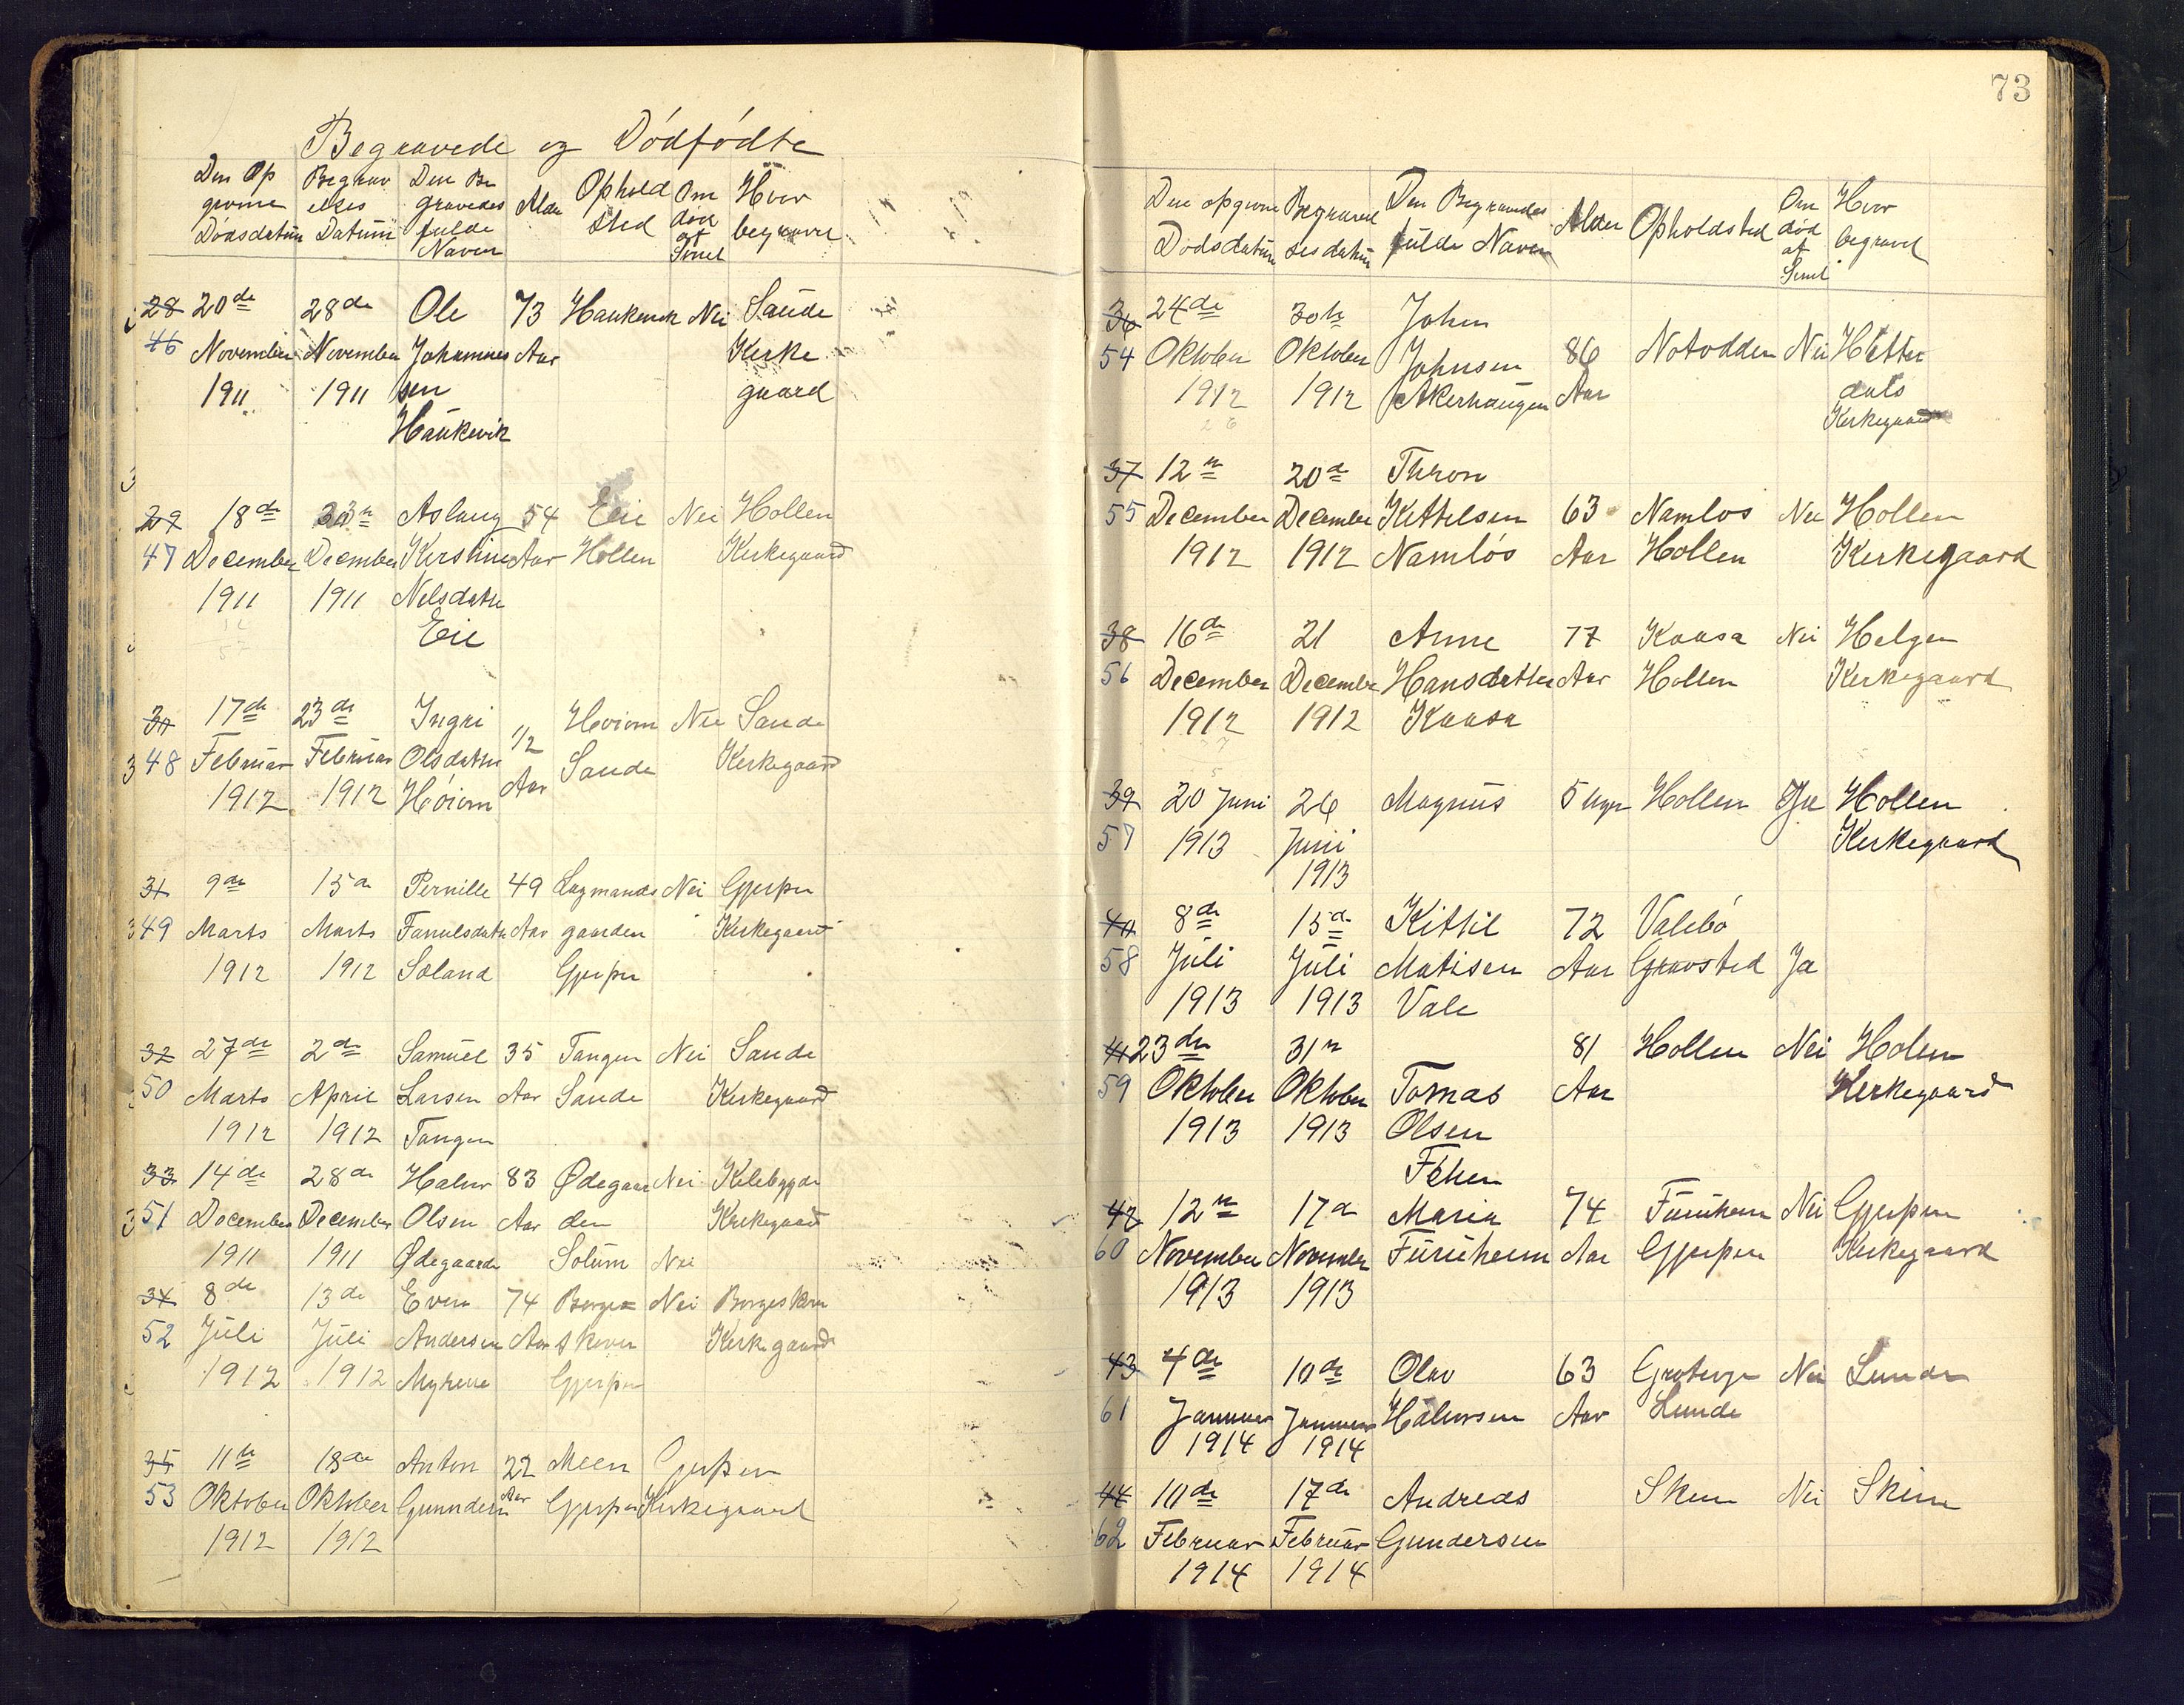 Begravede og Dödfödte
Den Op Begrav Den Be Alder Ophold Om Hvor
givne elses gravedes sted död begravet
Dödsdatüm Datüm fulde af
Navn Smit
28 20de 28de Ole 73 Haukevik Nei Saude
46 November November Johannes Aar Kirke
1911 1911 sen gaard
Haükevik
29 18de 23n Aslaug 54 Eie Nei Hollen
47 December December Kirstine Aar Hollen Kirkegaard
1911 1911 Nelsdatter
Eie
30 17de 23de Ingri 1/2 Höiom Nei Saude
48 Februar Februar Olsdatter Aar Saude Kirkegaard
1912 1912 Höiom
31 9de 15de Pernille 49 Lagmands Nei Gjerpen
49 Marts Marts Aar gaarden Kirkegaard
1912 1912 Soland Gjerpen
32 27de 2de Samüel 35 Tangen Nei Saude
50 Marts April Larsen Aar Saude Kirkegaard
1912 1912 Tangen
33 14de 28de Halvor 83 Ødegaar Nei Kilebygde
51 December December Olsen Aar den Kirkegaard
1911 1911 Ødegaarden Solüm Nei
34 8de 13de Even 74 Borge= Nei Borgeskov
52 Jüli Jüli Andersen Aar skoven Kirkegaard
1912 1912 Myrene Gjerpen
35 11te 18de Anton 22 Meen Gjerpen
53 Oktober Oktober Gunndersen Aar Gjerpen Kirkegaard
1912 1912
73
Den opgivne Begravel Den Begravedes Alder Opholdsted Om Hvor
Dodsdatum ses datüm fulde Navn död begravet
af
Smit
36 24de 30te John
54 Oktober Oktober Johnsen 86 Notodden Nei Hitter
1912 1912 Akerhaugen Aar dals
Kirkegaard
37 12te 20de Thron
55 December December Kittelsen 63 Namlos Nei Hollen
1912 1912 Namlös Aar Hollen Kirkegaard
38 16de 21 Anne 77 Kaasa Nei Helgen
56 December December Hansdatter Aar Hollen Kirkegaard
1912 1912 Kaasa
39 20 Juni 26 Magnüs 5 Uger Hollen Ja Hollen
57 1913 Juni Kirkegaard
1913
40 8de 15de Kittil 72 Valebö
58 Jüli Jüli Matisen Aar Gravsted Ja
1913 1913 Vale
41 23de 31te 81 Hollen Nei Holen
59 Oktober Oktober Tomas Aar Kirkegaard
1913 1913 Olsen
Fehen
42 12te 17de Maria 74 Fürüheim Nei Gjerpen
60 November November Fürüheim Aar Gjerpen Kirkegaard
1913 1913
43 4de 10de Olav 63 Nei Lunde
61 Januar Januar Halvorsen Aar Lunde
1914 1914
44 10de 17de Andreas Skien Nei Skien
62 Februar Februar Gundersen
1914 1914